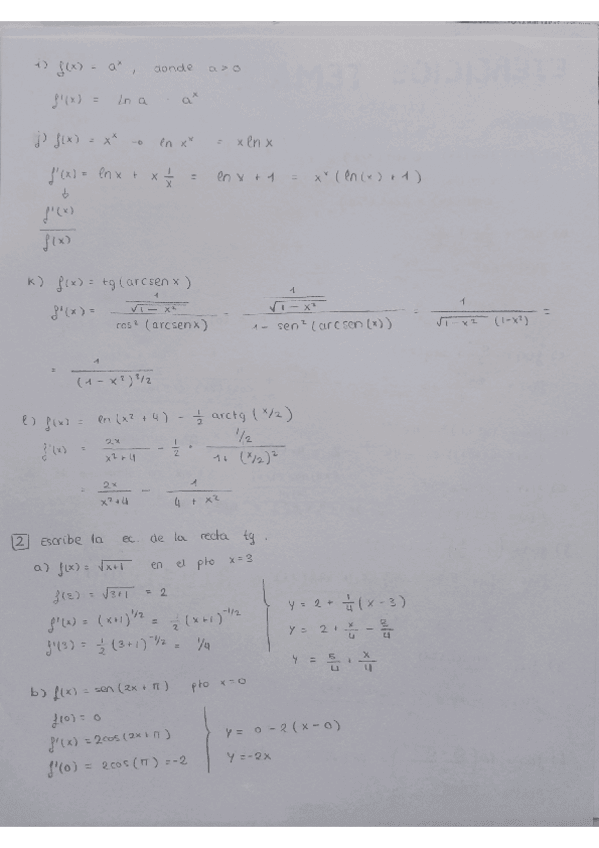 i) f(x) = a^x, donde a>0
f'(x) = ln a · a^x
j) f(x) = x^x → ln x^x = x ln x
f'(x) = ln x + x 1/x = ln x + 1 = x^x (ln(x) + 1)
↓
f'(x)/f(x)
k) f(x) = tg(arcsen x)
f'(x) = (1/√(1-x²))/(cos²(arcsen x)) = (1/√(1-x²))/(1 - sen²(arcsen(x))) = 1/(√(1-x²) (1-x²)) =
= 1/(1-x²)^3/2
l) f(x) = ln(x²+4) - 1/2 arctg(x/2)
f'(x) = 2x/(x²+4) - 1/2 · (1/2)/(1+(x/2)²)
= 2x/(x²+4) - 1/(4+x²)
2 Escribe la ec. de la recta tg.
a) f(x) = √(x+1) en el pto x=3
f(3) = √(3+1) = 2
f'(x) = (x+1)^1/2 = 1/2 (x+1)^-1/2
f'(3) = 1/2 (3+1)^-1/2 = 1/4
y = 2 + 1/4 (x-3)
y = 2 + x/4 - 3/4
y = 5/4 + x/4
b) f(x) = sen(2x+π) pto x=0
f(0) = 0
f'(x) = 2cos(2x+π)
f'(0) = 2cos(π) = -2
y = 0 - 2(x-0)
y = -2x